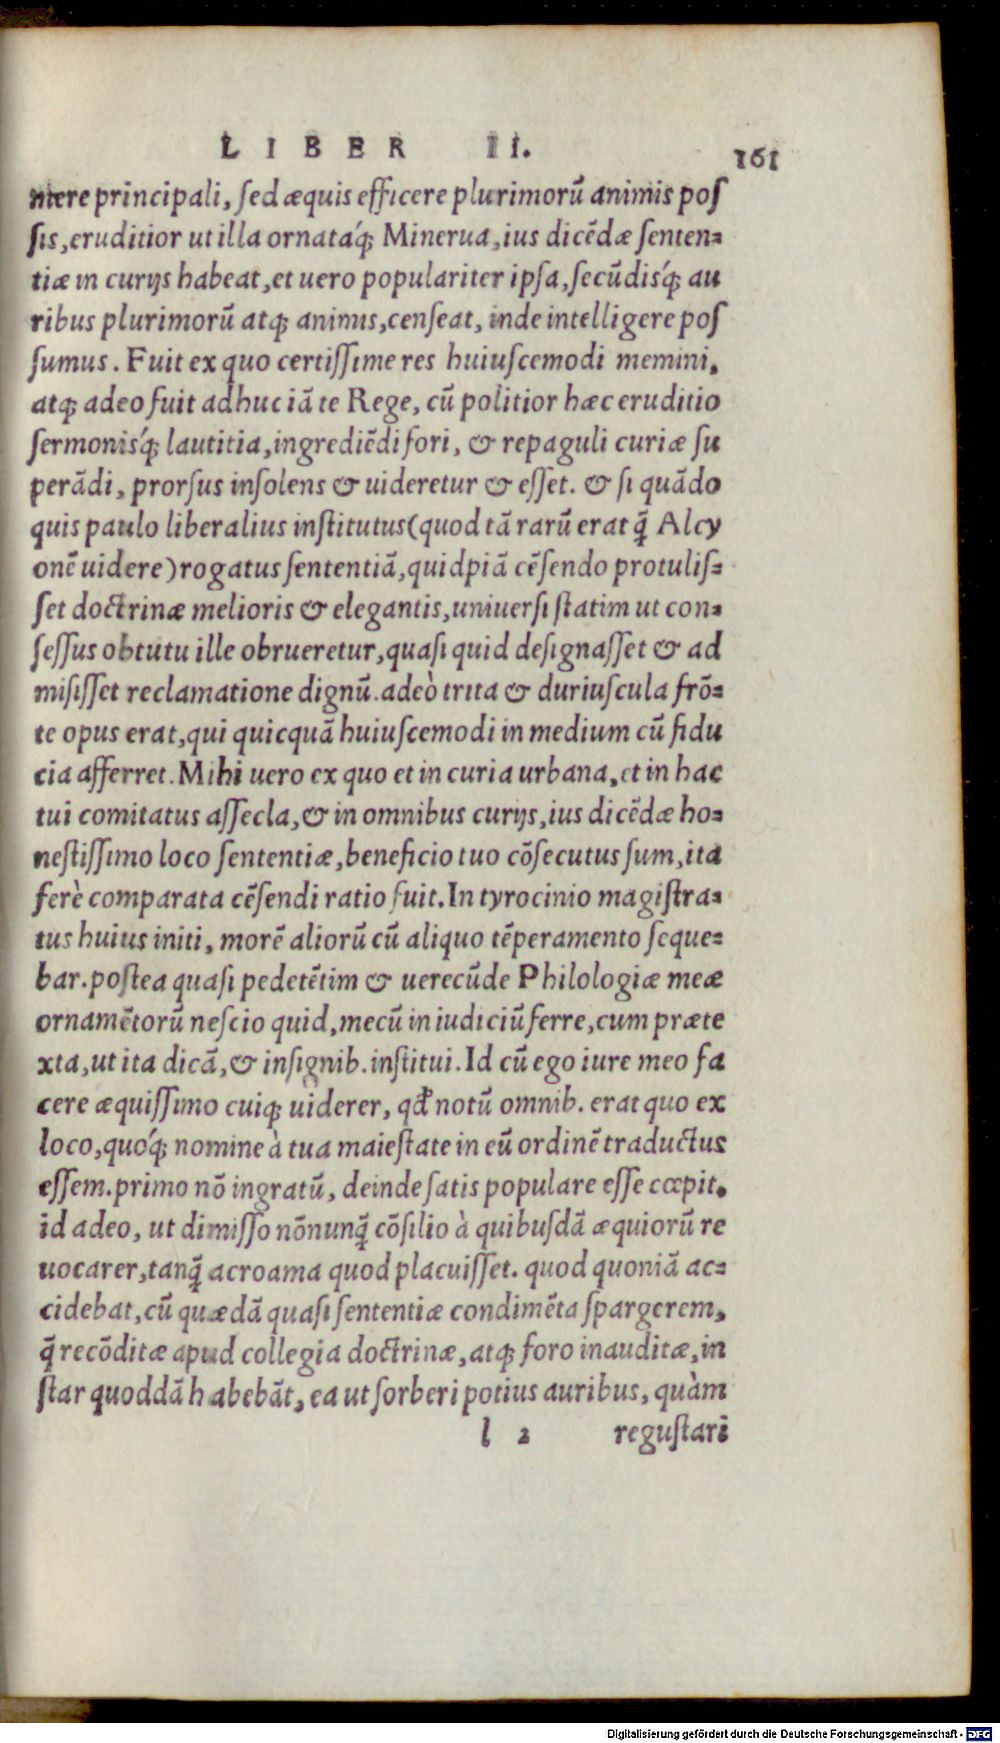 LIBER II. 161
mere principali, sed æquis efficere plurimorũ animis pos
sis, eruditior ut illa ornatáq́; Minerua, ius dicẽdæ senten=
tiæ in curijs habeat, et uero populariter ipsa, secũdisq́; au
ribus plurimorũ atq; animis, censeat, inde intelligere pos
sumus. Fuit ex quo certissime res huiuscemodi memini,
atq; adeo fuit adhuc iã te Rege, cũ politior hæc eruditio
sermonisq́; lautitia, ingrediẽdi fori, & repaguli curiæ su
perãdi, prorsus insolens & uideretur & esset. & si quãdo
quis paulo liberalius institutus (quod tã rarũ erat q̃ Alcy
onẽ uidere) rogatus sententiã, quidpiã cẽsendo protulis=
set doctrinæ melioris & elegantis, uniuersi statim ut con=
sessus obtutu ille obrueretur, quasi quid designasset & ad
misisset reclamatione dignũ. adeò trita & duriuscula frõ=
te opus erat, qui quicquã huiuscemodi in medium cũ fidu
cia afferret. Mihi uero ex quo et in curia urbana, et in hac
tui comitatus assecla, & in omnibus curijs, ius dicẽdæ ho=
nestissimo loco sententiæ, beneficio tuo cõsecutus sum, ita
ferè comparata cẽsendi ratio fuit. In tyrocinio magistra=
tus huius initi, morẽ aliorũ cũ aliquo tẽperamento seque=
bar. postea quasi pedetẽtim & uerecũde Philologiæ meæ
ornamẽtorũ nescio quid, mecũ in iudiciũ ferre, cum præte
xta, ut ita dicã, & insignib. institui. Id cũ ego iure meo fa
cere æquissimo cuiq; uiderer, qđ notũ omnib. erat quo ex
loco, quoq́; nomine à tua maiestate in eũ ordinẽ traductus
essem. primo nõ ingratũ, deinde satis populare esse cœpit.
id adeo, ut dimisso nõnunq̃ cõsilio à quibusdã æquiorũ re
uocarer, tanq̃ acroama quod placuisset. quod quoniã ac=
cidebat, cũ quædã quasi sententiæ condimẽta spargerem,
q̃ recõditæ apud collegia doctrinæ, atq; foro inauditæ, in
star quoddã habebãt, ea ut sorberi potius auribus, quàm
l 2 regustari
Digitalisierung gefördert durch die Deutsche Forschungsgemeinschaft - DFG